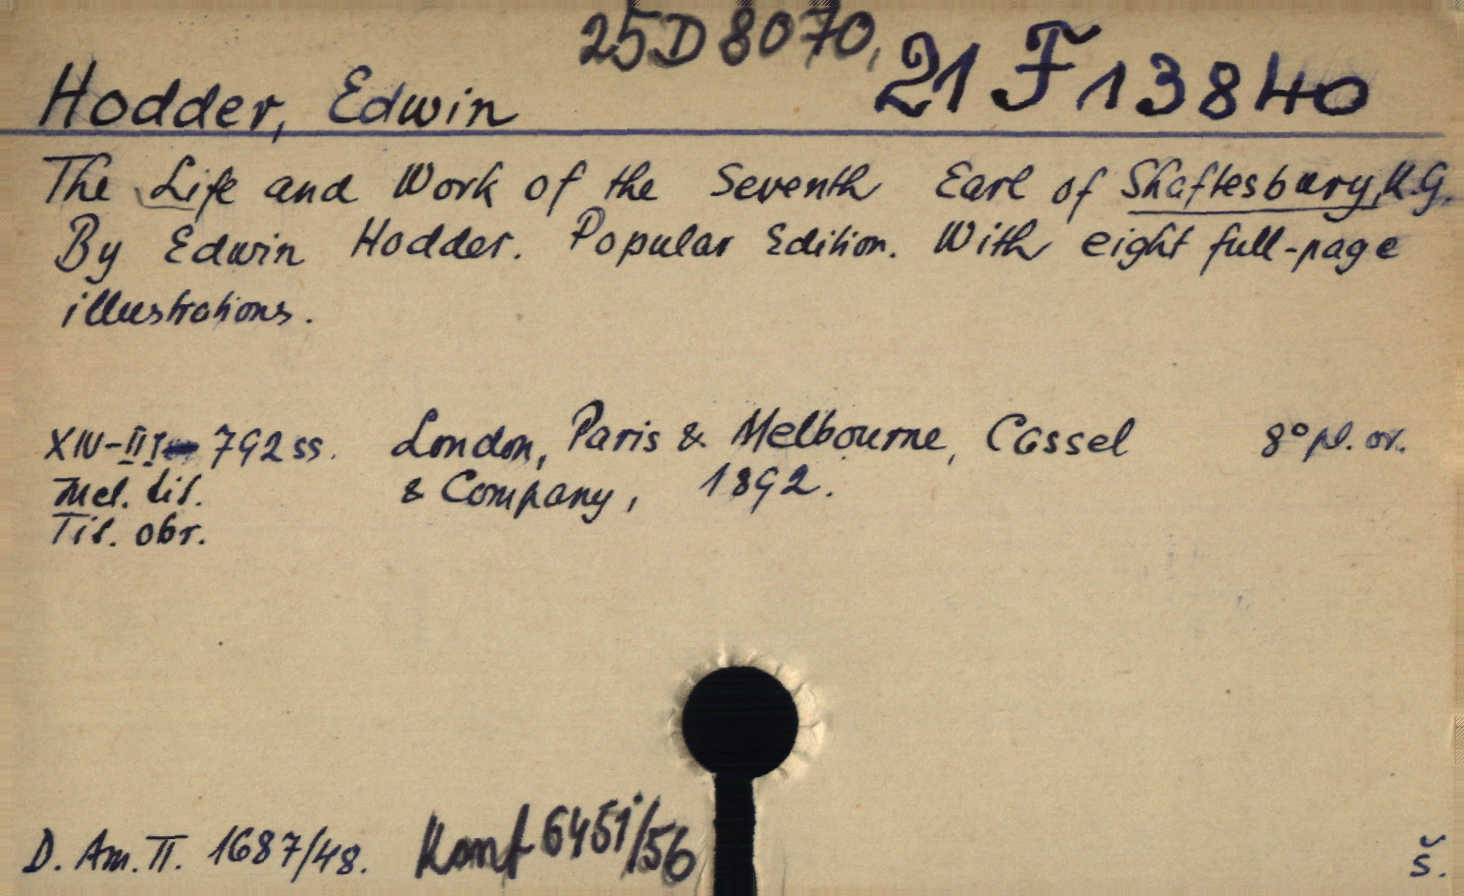 25D 8070,
21 F 13840
Hodder, Edwin
The Life and Work of the Seventh Earl of Shaftesbury, K.G.
By Edwin Hodder. Popular Edition. With eight full-page
illustrations.
XIV-III 792 ss. London, Paris & Melbourne, Cassel 8° pl. or.
Med. tit. & Company, 1892.
Tit. obr.
D. Am. II. 1687/48. Konf 6451/56 š.